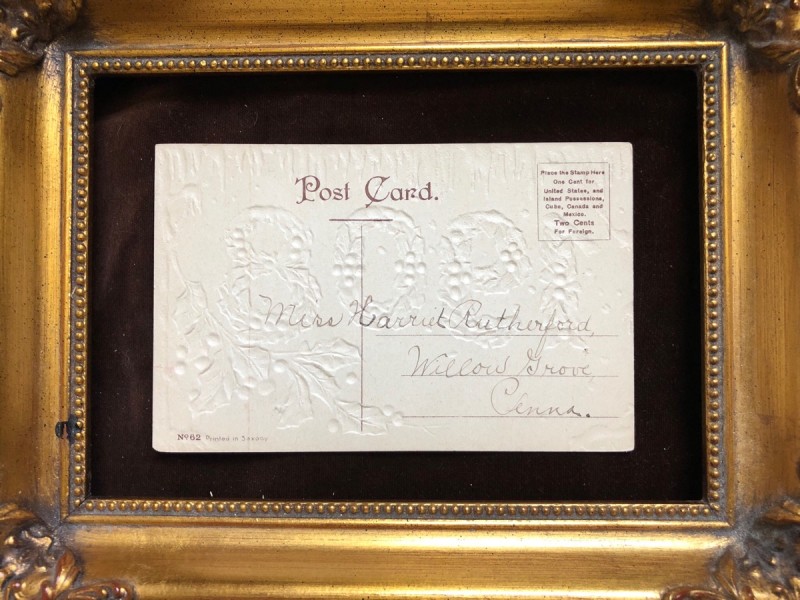 Post Card.
Place the Stamp Here
One Cent for
United States, and
Island Possessions,
Cuba, Canada and
Mexico.
Two Cents
For Foreign.
Miss Harriet Rutherford,
Willow Grove,
Penna.
No 62 Printed in Saxony